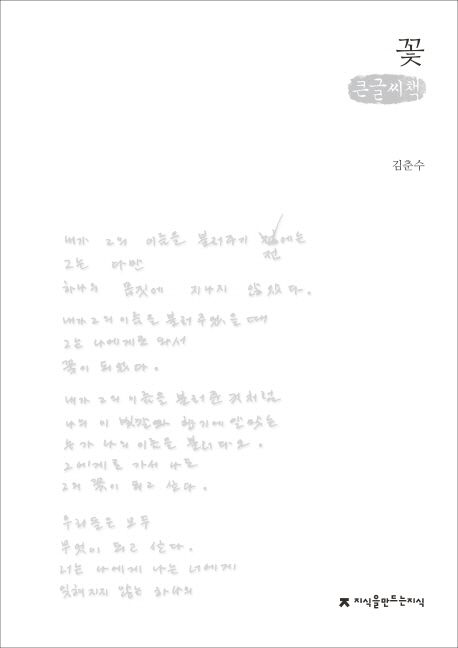 꽃
큰글씨책
김춘수
내가 그의 이름을 불러주기 전에는
그는 다만
하나의 몸짓에 지나지 않았다.
내가 그의 이름을 불러 주었을 때
그는 나에게로 와서
꽃이 되었다.
내가 그의 이름을 불러 준 것처럼
나의 이 빛깔과 향기에 알맞는
누가 나의 이름을 불러 다오.
그에게로 가서 나도
그의 꽃이 되고 싶다.
우리들은 모두
무엇이 되고 싶다.
너는 나에게 나는 너에게
잊혀지지 않는 하나의
지식을만드는지식